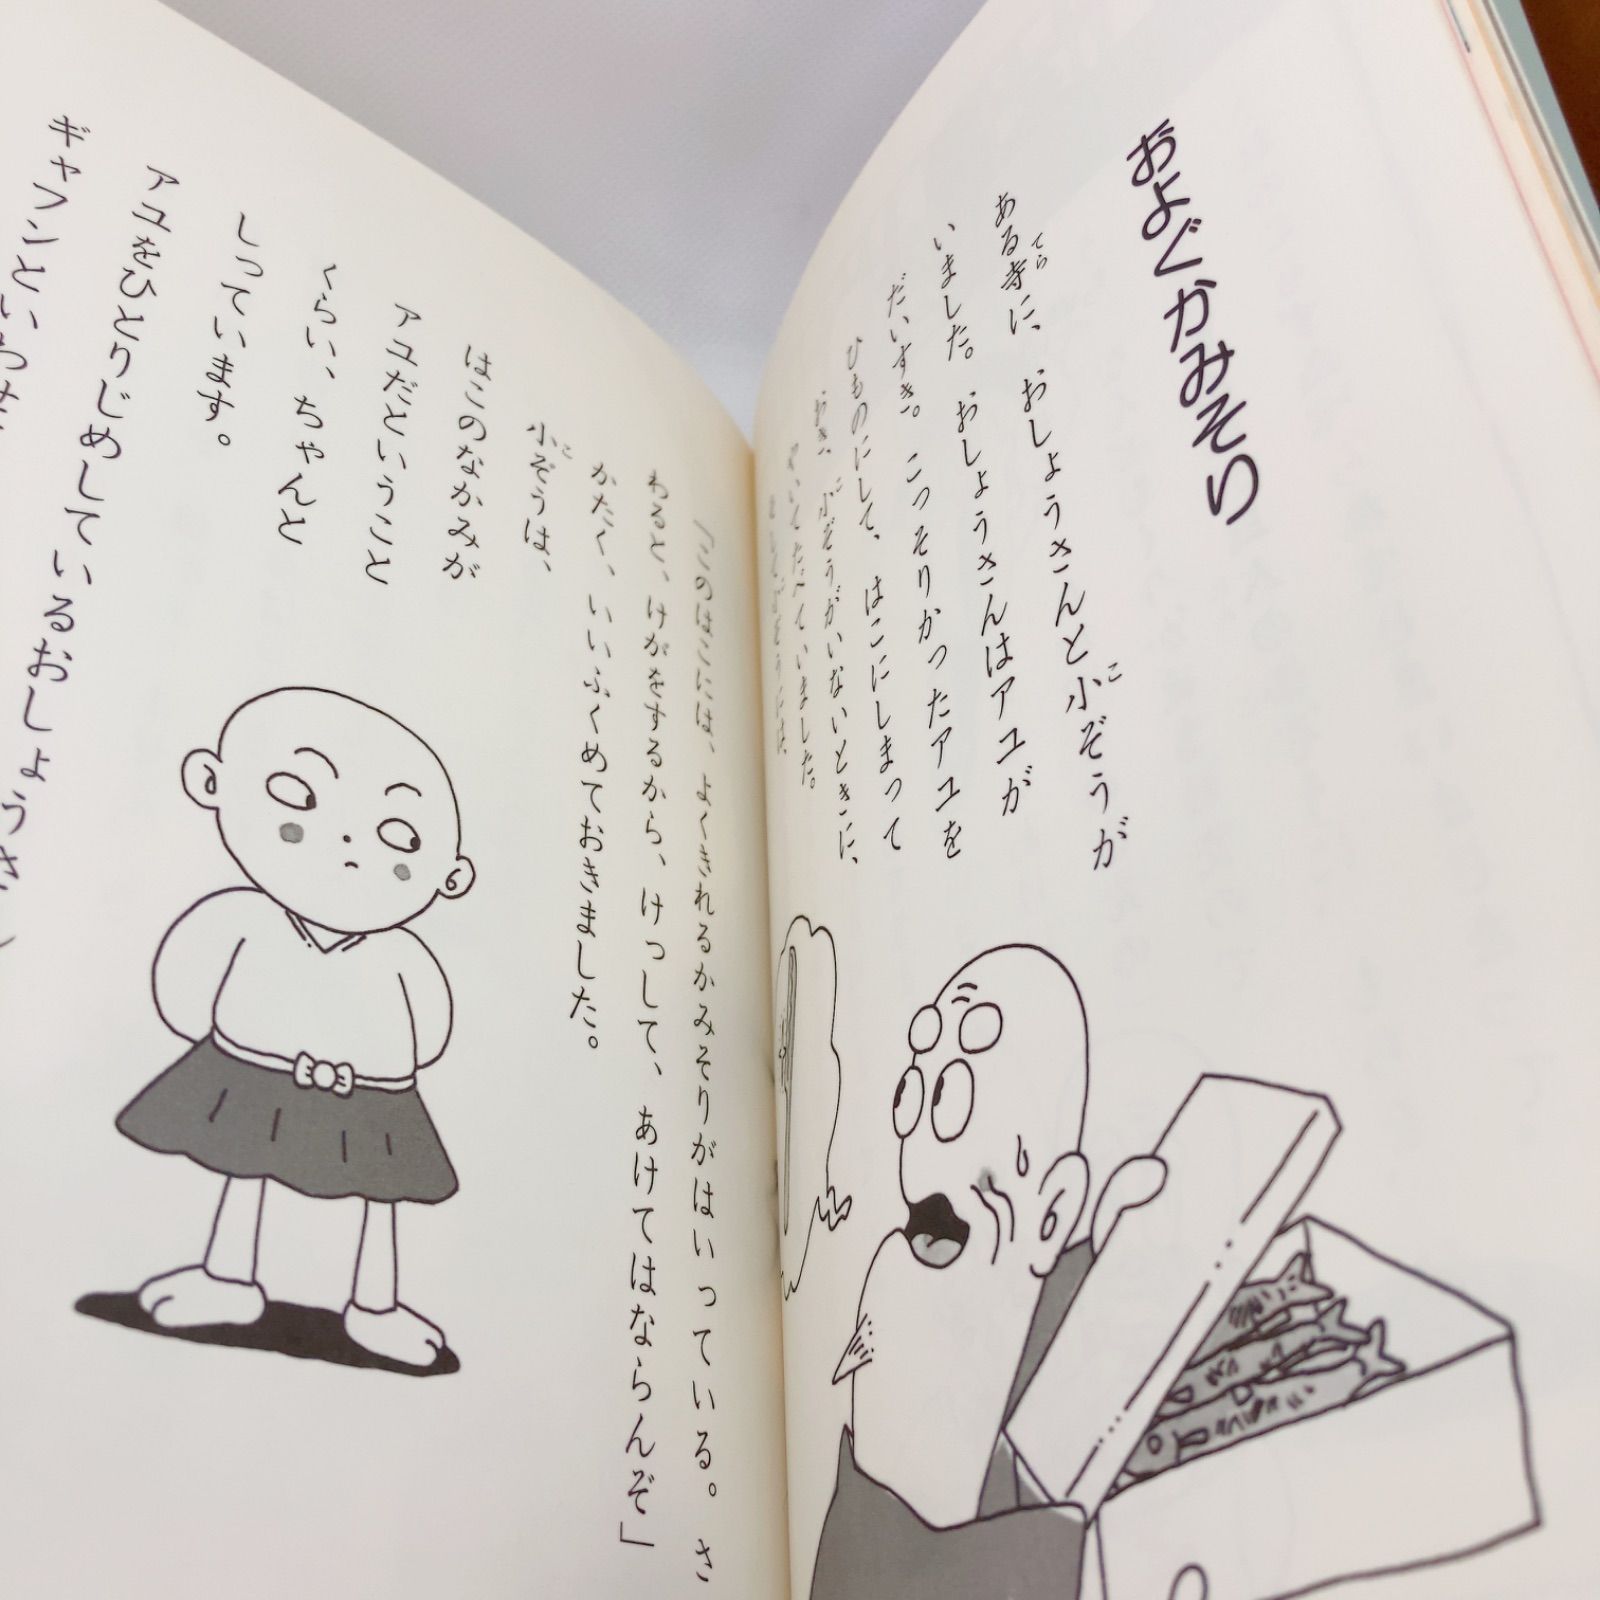 およぐかみそり
てら
こ
ある寺に、おしょうさんと小ぞうが
いました。おしょうさんはアユが
だいすき。こっそりかったアユを
ひものにして、はこにしまって
こ
おき、小ぞうがいないときに、
やいてたべていました。
小ぞうには、
「このはこには、よくきれるかみそりがはいっている。さ
わると、けがをするから、けっして、あけてはならんぞ」
かたく、いいふくめておきました。
こ
小ぞうは、
はこのなかみが
アユだということ
くらい、ちゃんと
しっています。
アユをひとりじめしているおしょうさ
ギャフンといわせ